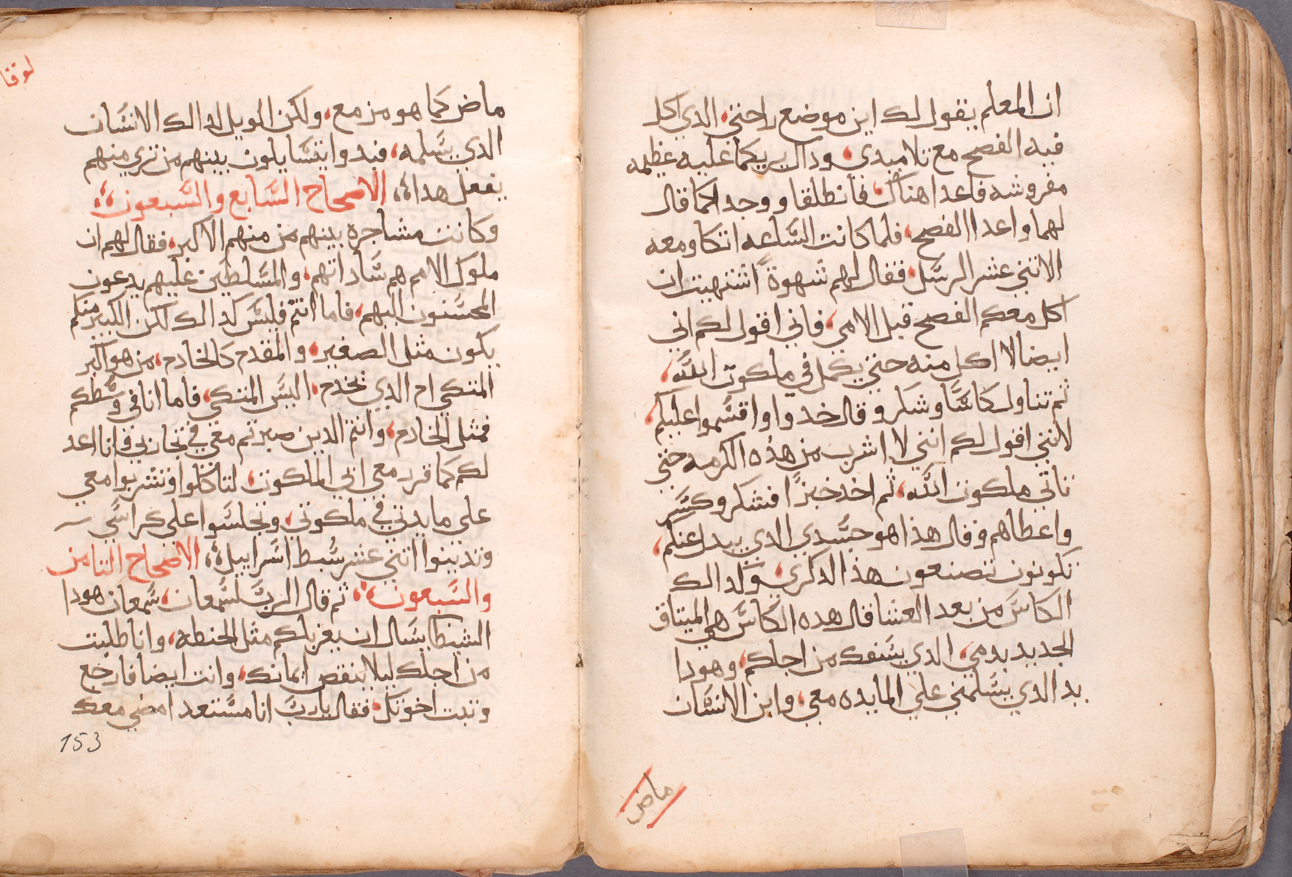 ان المعلم يقول لك اين موضع راحتي، الذي اكل
فيه الفصح مع تلاميدي، وداك يريكما عليه عظيمه
مفروشه فاعدا هناك، فانطلقا ووجدا كما قال
لهما واعدا الفصح، فلما كانت السّاعه اتكا ومعه
الاتني عشر الرسّل، فقال لهم شهوةً اشتهيت ان
اكل معكم الفصح قبل الامي، فاني اقول لكم اني
ايضا لا اكل منه حتي يكمل في ملكوت الله،
ثم تناول كاسًّا وشكر وقال خدوا واقسّموا عليكم،
لانني اقول لكم انني لا اشرب من هذه الكرمه حتي
تاتي ملكوت الله، ثم اخد خبزًا فشكر وكسّر
واعطاهم وقال هذا هو جسّدي الذي يبدل عنكم،
تكونون تصنعون هذا لدكري، وكدالك
الكاسّ من بعد العشا قال هده الكاسّ هي الميتاق
الجديد بدمي، الدي يسّفك من اجلكم، وهودا
يد الدي يسّلمني علي المايده معي، وابن الانسّان
ماض
لوقا
ماض كما هو مزمع، ولكن الويل لدالك الانسّان
الدي يسّلمه، فبدوا يتسّايلون بينهم من تري منهم
يفعل هدا، الاصحاح السّابع والسّبعون،
وكانت مشاجره بينهم من منهم الاكبر، فقال لهم ان
ملوك الامم هم سّاداتهم، والمسّلطين عليهم يدعون
المحسّنون اليهم، فاما انتم فليسّ كدالك لكن الكبير منكم
يكون مثل الصغير، والمقدم كالخادم، من هو اكبر
المتكي ام الدي يخدم، اليسّ المتكي، فاما انا في وسّطكم
فمثل الخادم، وانتم الدين صبرتم معي في تجاربي فانا اعد
لكم كما قرر معي ابي الملكوت، لتاكلوا وتشربوا معي
علي مايدتي في ملكوتي، وتجلسّوا علي كراسّي
وتدينوا اتني عشر سّبط اسّراييل، الاصحاح التامن
والسّبعون، تم قال الربّ لسّمعان، سّمعان هودا
الشيطا يسّال ان يغربلكم مثل الحنطه، وانا طلبت
من اجلك ليلا ينقص ايمانك، وانت ايضا فارجع
وتبت اخوتك، فقال ياربّ انا مسّتعد امضي معك
153